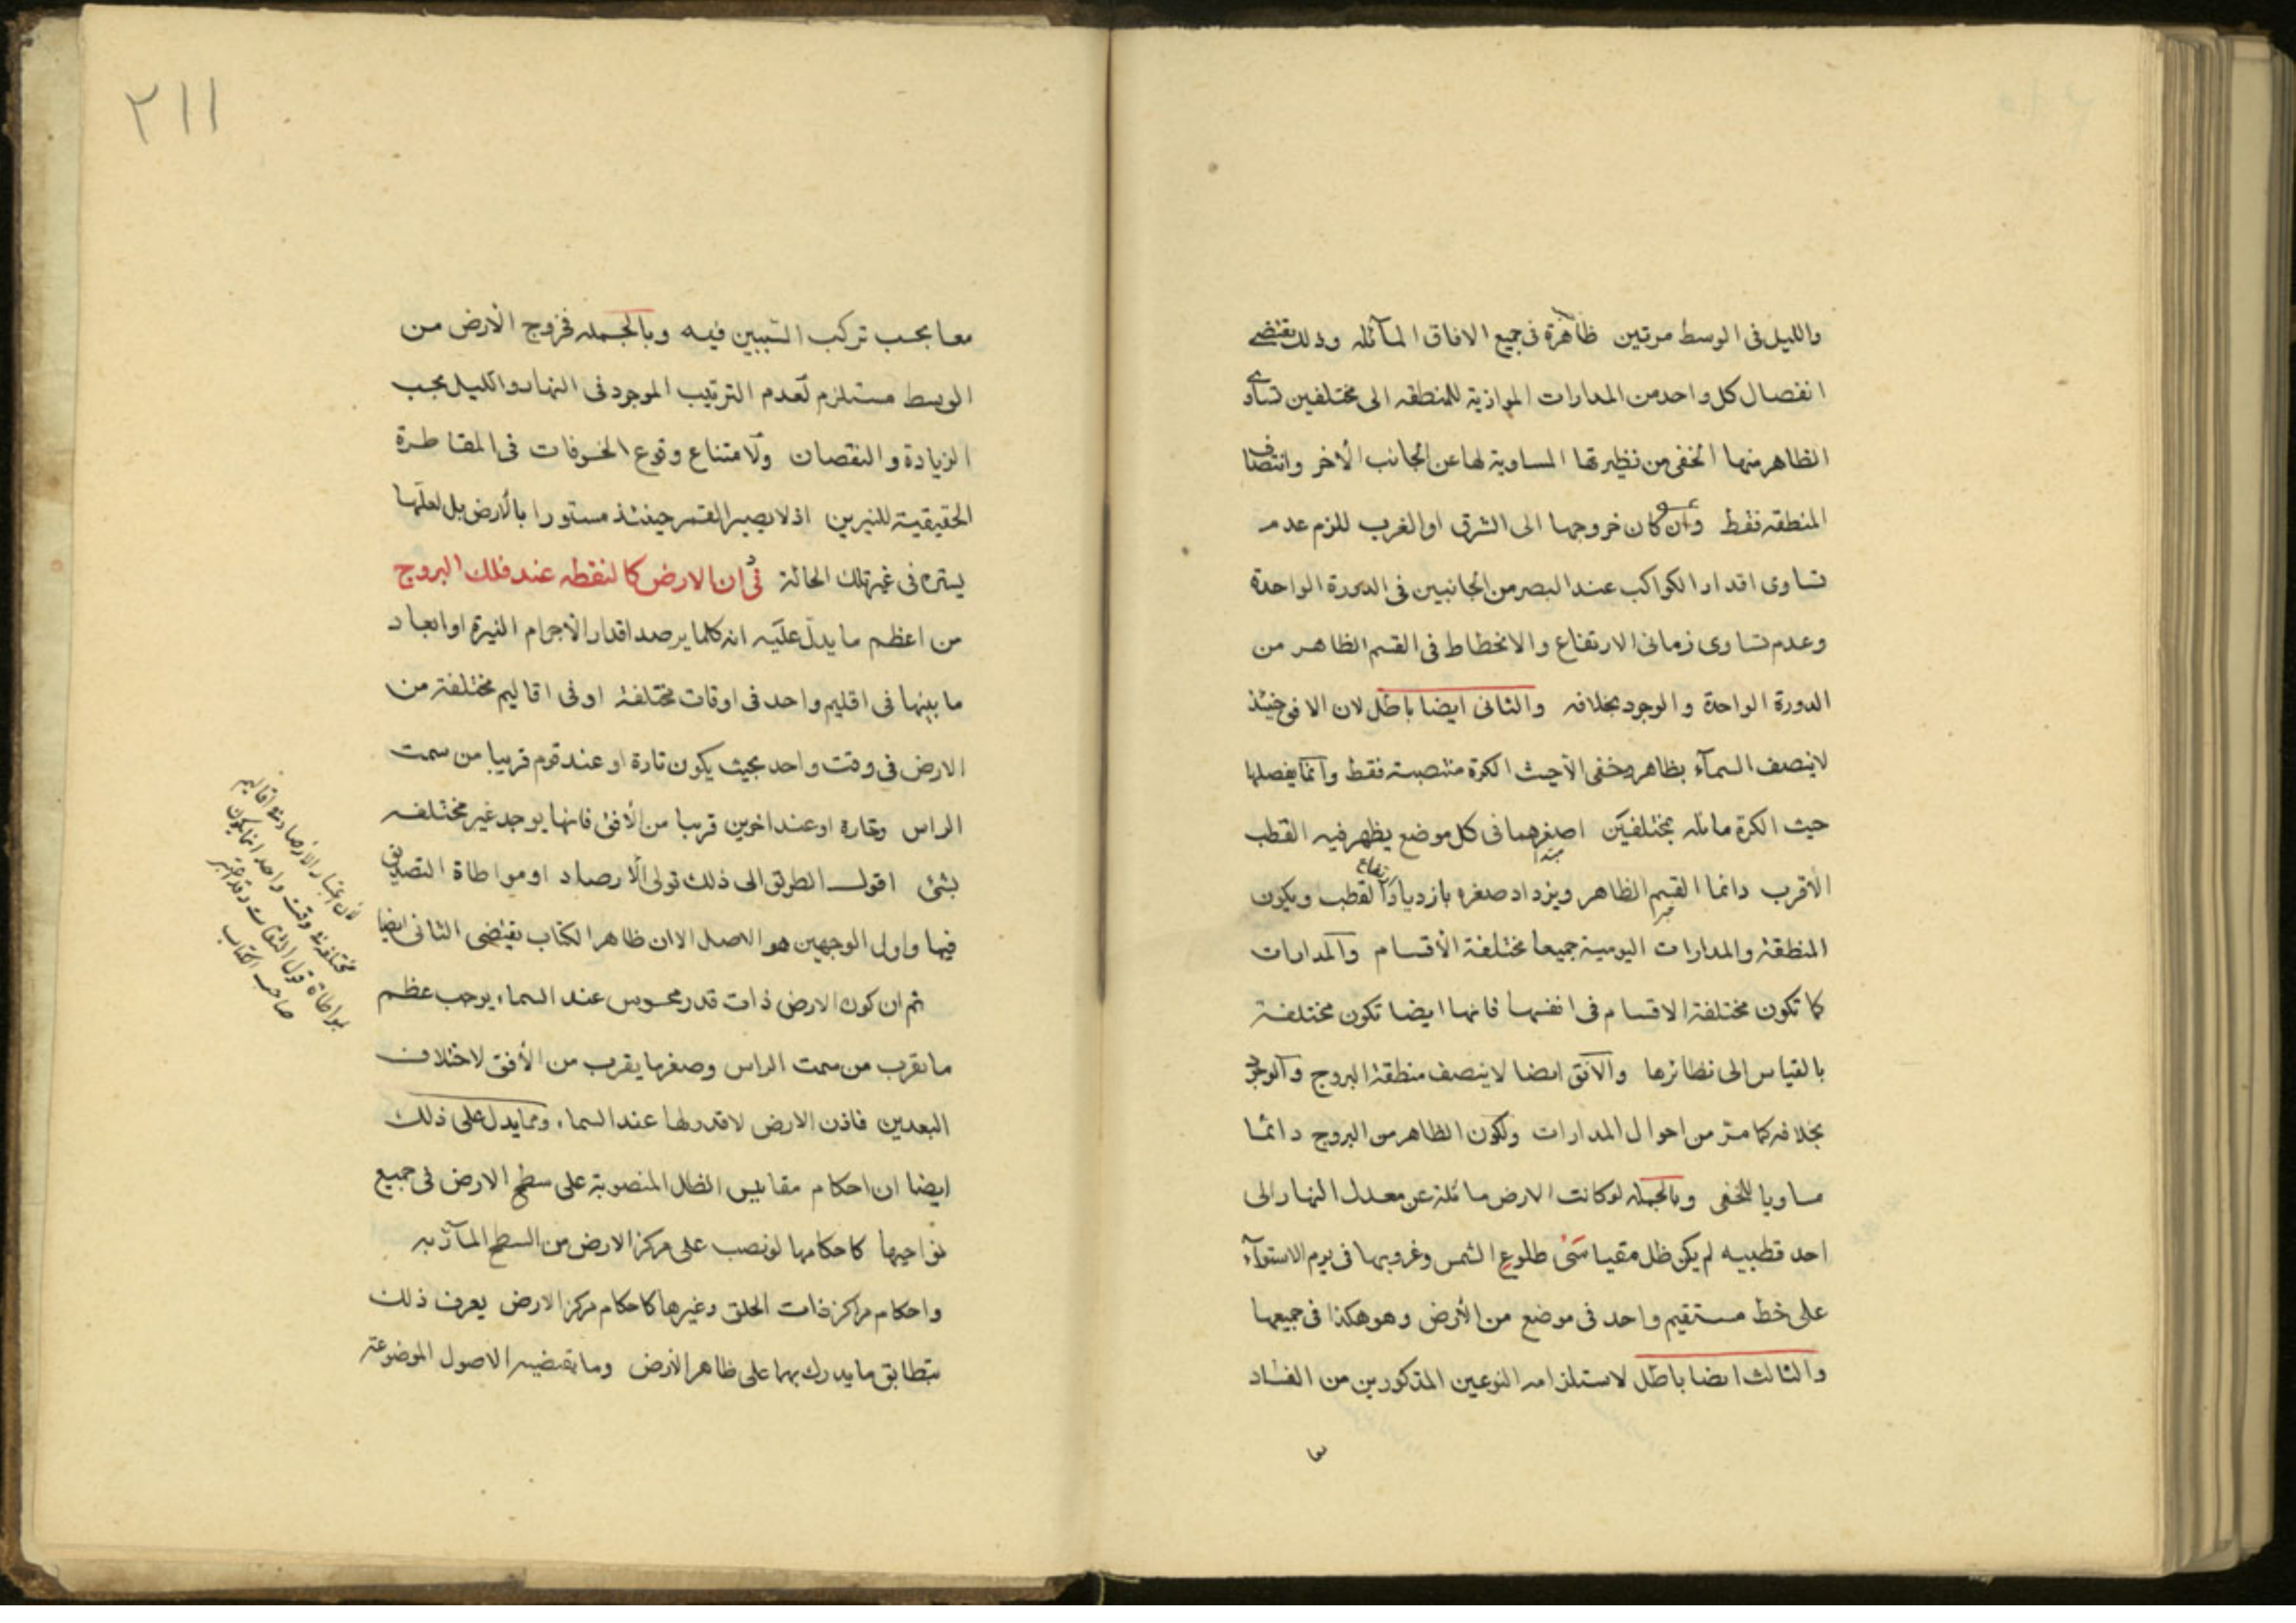 والليل فى الوسط مرتين ظاهرة فى جميع الافاق المآئله وذلك يقتضى
انفصال كل واحد من المدارات الموازية للمنطقه الى مختلفين تساوى
الظاهر منها الخفى من نظيرتها المساوية لها عن الجانب الآخر وانتصاف
المنطقه فقط وان كان خروجها الى الشرق او الغرب للزم عدم
تساوى اقدار الكواكب عند البصر من الجانبين فى الدورة الواحدة
وعدم تساوى زمانى الارتفاع والانحطاط فى القسم الظاهر من
الدورة الواحدة والوجود بخلافه والثانى ايضا باطل لان الافق حينئذ
لاينصف السمآء بظاهر وخفى الآحيث الكرة منتصبة فقط وانما يفصلها
حيث الكرة مائله بمختلفين اصغرهما فى كل موضع يظهر فيه القطب
الأقرب دائما القسم الظاهر ويزداد صغره بازدياد ارتفاع القطب ويكون
المنطقة والمدارات اليومية جميعا مختلفة الأقسام والمدارات
كما تكون مختلفة الاقسام فى انفسها فانها ايضا تكون مختلفة
بالقياس الى نظائرها والآفق ايضا لاينصف منطقة البروج والوجود
بخلافه كما مر من احوال المدارات ولكون الظاهر من البروج دائما
مساويا للخفى وبالجمله لو كانت الارض مائلة عن معدل النهار الى
احد قطبيه لم يكن ظل مقياسى طلوع الشمس وغروبها فى يوم الاستوآء
على خط مستقيم واحد فى موضع من الأرض وهو هكذا فى جميعها
والثالث ايضا باطل لاستلزامه النوعين المذكورين من الفساد
٢١١
معا بحسب تركب السببين فيه وبالجمله فخروج الأرض من
الوسط مستلزم لعدم الترتيب الموجود فى النهار والليل بحسب
الزيادة والنقصان ولامتناع وقوع الخسوفات فى المقاطرة
الحقيقية للنيرين اذ لا يصير القمر حينئذ مستورا بالأرض بل لعلها
يستره فى غير تلك الحالة فى ان الارض كالنقطه عند فلك البروج
من اعظم ما يدل عليه انه كلما يرصد اقدار الأجرام النيرة او ابعاد
ما بينها فى اقليم واحد فى اوقات مختلفة او فى اقاليم مختلفة من
الارض فى وقت واحد بحيث يكون تارة او عند قوم قريبا من سمت
الراس وتارة او عند اخرين قريبا من الأفق فانها يوجد غير مختلفه
بشئ اقول الطريق الى ذلك تولى الأرصاد او مواطاة التصديق
فيها واول الوجهين هو الاصل الا ان ظاهر الكتاب يقتضى الثانى ايضا
ثم ان كون الارض ذات قدر محسوس عند السماء يوجب عظم
ما يقرب من سمت الراس وصغر ما يقرب من الأفق لاختلاف
البعدين فاذن الارض لا قدر لها عند السماء ومما يدل على ذلك
ايضا ان احكام مقاييس الظل المنصوبة على سطح الارض فى جميع
نواحيها كاحكامها لو نصب على مركز الارض من السطح المآرّ به
واحكام مراكز ذات الحلق وغيرها كاحكام مركز الارض يعرف ذلك
بتطابق ما يدرك بها على ظاهر الأرض وما تقتضيه الاصول الموضوعة
فان اعتبار الارصاد فى اقاليم
مختلفة فى وقت واحد انما يكون
بمواطاة قول الثقات وقد اعتبر
صاحب الكتاب